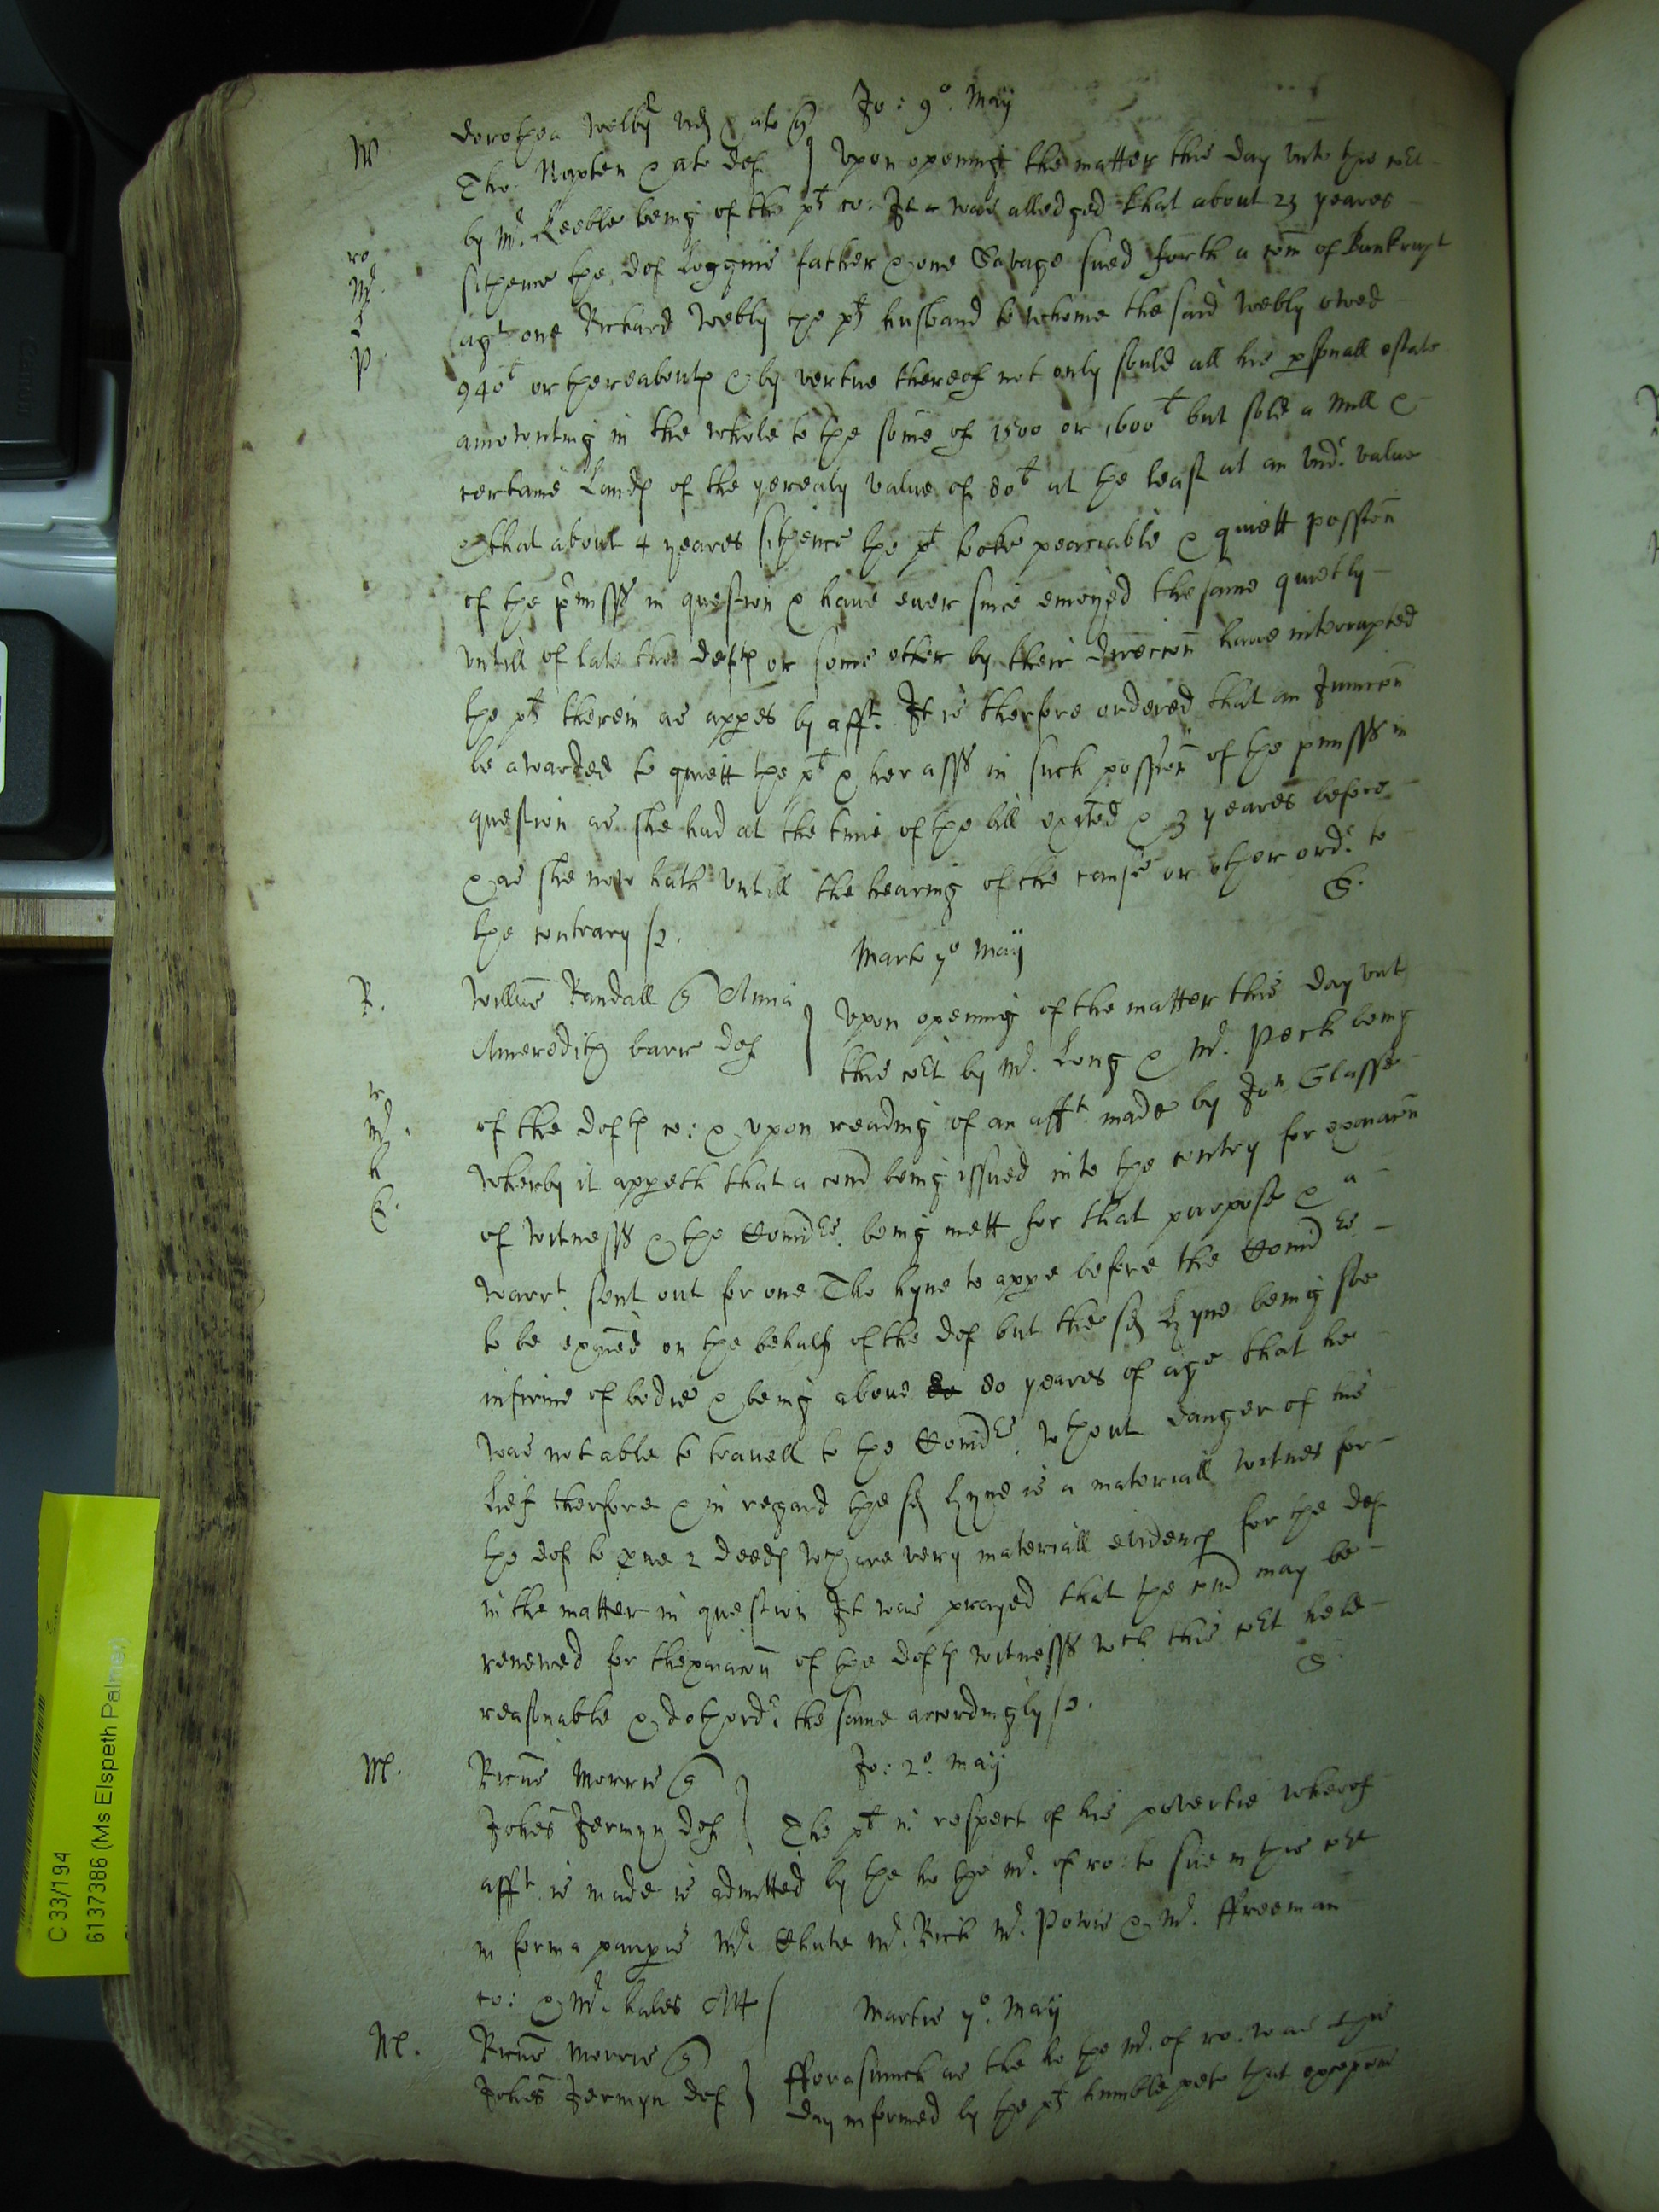 Jo: 9o May
W Dorothea Welby vid & al q
Tho Noxten & al def } Vpon opening the matter this day vnto this cot
by Mr. Keeble being of the plt co: It was alledged that about 23 yeares
ro sithence the def Loggins father & one Savage sued forth a com of Bankrupt
Mr. agt. one Richard Webly the plts husband to whome the said Webly owed
P 940l or thereabouts & by vertue thereof not only sould all his psonall estate
amounting in the whole to the some of 1500 or 1600l but sold a Mill &
certaine Lands of the yerealy value of 80l at the least at an vnder value
& that about 4 yeares sithence the plt tooke peaceable & quiett possion
of the pmisss in question & have ever since enioyed the same quietly
vntill of late the defts or some other by their direcion have interrupted
the plt therein as appes by afft. It is therfore ordered that an Iniuncon
be awarded to quiett the plt & her asss in such possion of the pmisss in
question as she had at the time of the bill exited & 3 yeares before
& as she now hath vntill the hearing of the cause or other ordr to
the contrary /2. S.
Marte 7o May
R. Willus Randall q
Ameredith barr def } Vpon opening of the matter this day vnt
this cot by Mr. Long & Mr. Peck being
r of the defts co: & vpon reading of an afft made by Jon Glasse
Mr. wherby it appeth that a com being issued into the contry for exacon
h of witnesss & the Comrs. being mett for that purpose & a
S. warrt. sent out for one Tho hyne to appe before the Comrs.
to be exaied on the behalf of the def but the sd hyne being soe
infirme of bodie & being above 80 yeares of age that he
was not able to travell to the Comrs. wthout danger of his
Lief therfore & in regard the sd hyne is a materiall witnes for
the def to pve 2 deeds wch are very materiall evidence for the def
in the matter in question It was prayed that the com may be
renewed for thexacon of the defts witnesss wch this cot held
reasonable & doth ordr the same accordingly /2. S.
Jo: 2o. May
M. Ricus Morris q
Johes Jermyn def } The plt in respect of his povertie wherof
afft is made is admitted by the ho the Mr. of ro: to sue in this cot
in forma paupis Mr. Chute Mr. Rich Mr. Powis & Mr. ffreeman
co: & Mr. hales Att /
Martis 7o. May
M. Ricus Morris q
Johes Jermyn def } fforasmuch as the ho the Mr. of ro. was this
day informed by the plts humble peto that excepcons
C 33/194
6137386 (Ms Elspeth Palmer)